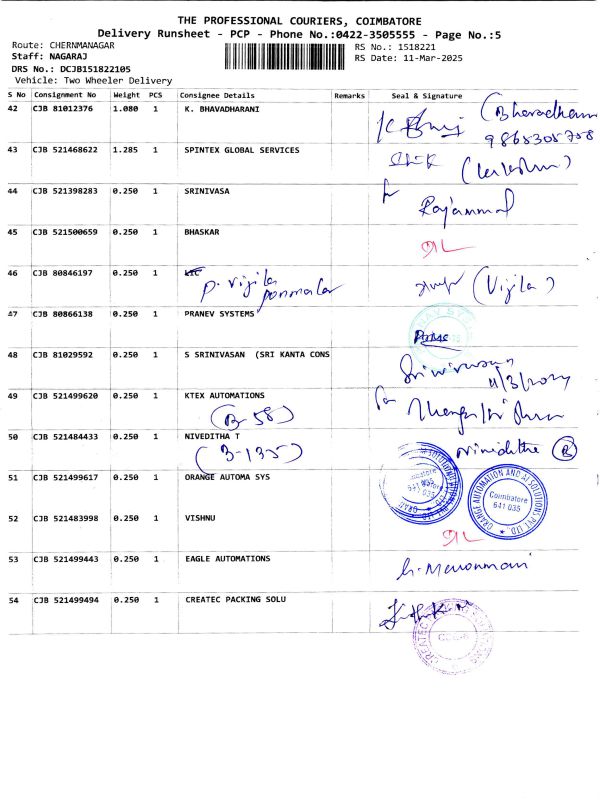 THE PROFESSIONAL COURIERS, COIMBATORE
Delivery Runsheet - PCP - Phone No.:0422-3505555 - Page No.:5
Route: CHERNMANAGAR
RS No.: 1518221
Staff: NAGARAJ
RS Date: 11-Mar-2025
DRS No.: DCJB151822105
Vehicle: Two Wheeler Delivery
S No Consignment No Weight PCS Consignee Details Remarks Seal & Signature
42 CJB 81012376 1.080 1 K. BHAVADHARANI
9865305758
43 CJB 521468622 1.285 1 SPINTEX GLOBAL SERVICES
44 CJB 521398283 0.250 1 SRINIVASA
Rajammal
45 CJB 521500659 0.250 1 BHASKAR
46 CJB 80846197 0.250 1 LIC
P. Vijila (Vijila)
ponmalar
47 CJB 80866138 0.250 1 PRANEV SYSTEMS
48 CJB 81029592 0.250 1 S SRINIVASAN (SRI KANTA CONS
Srinivasan
11/3/2024
49 CJB 521499620 0.250 1 KTEX AUTOMATIONS
(B-58)
50 CJB 521484433 0.250 1 NIVEDITHA T
(B-135) Nivedithe (B)
51 CJB 521499617 0.250 1 ORANGE AUTOMA SYS
ORANGE AUTOMATION AND AI SOLUTIONS PVT. LTD.,
Coimbatore
641 035
52 CJB 521483998 0.250 1 VISHNU
53 CJB 521499443 0.250 1 EAGLE AUTOMATIONS
54 CJB 521499494 0.250 1 CREATEC PACKING SOLU